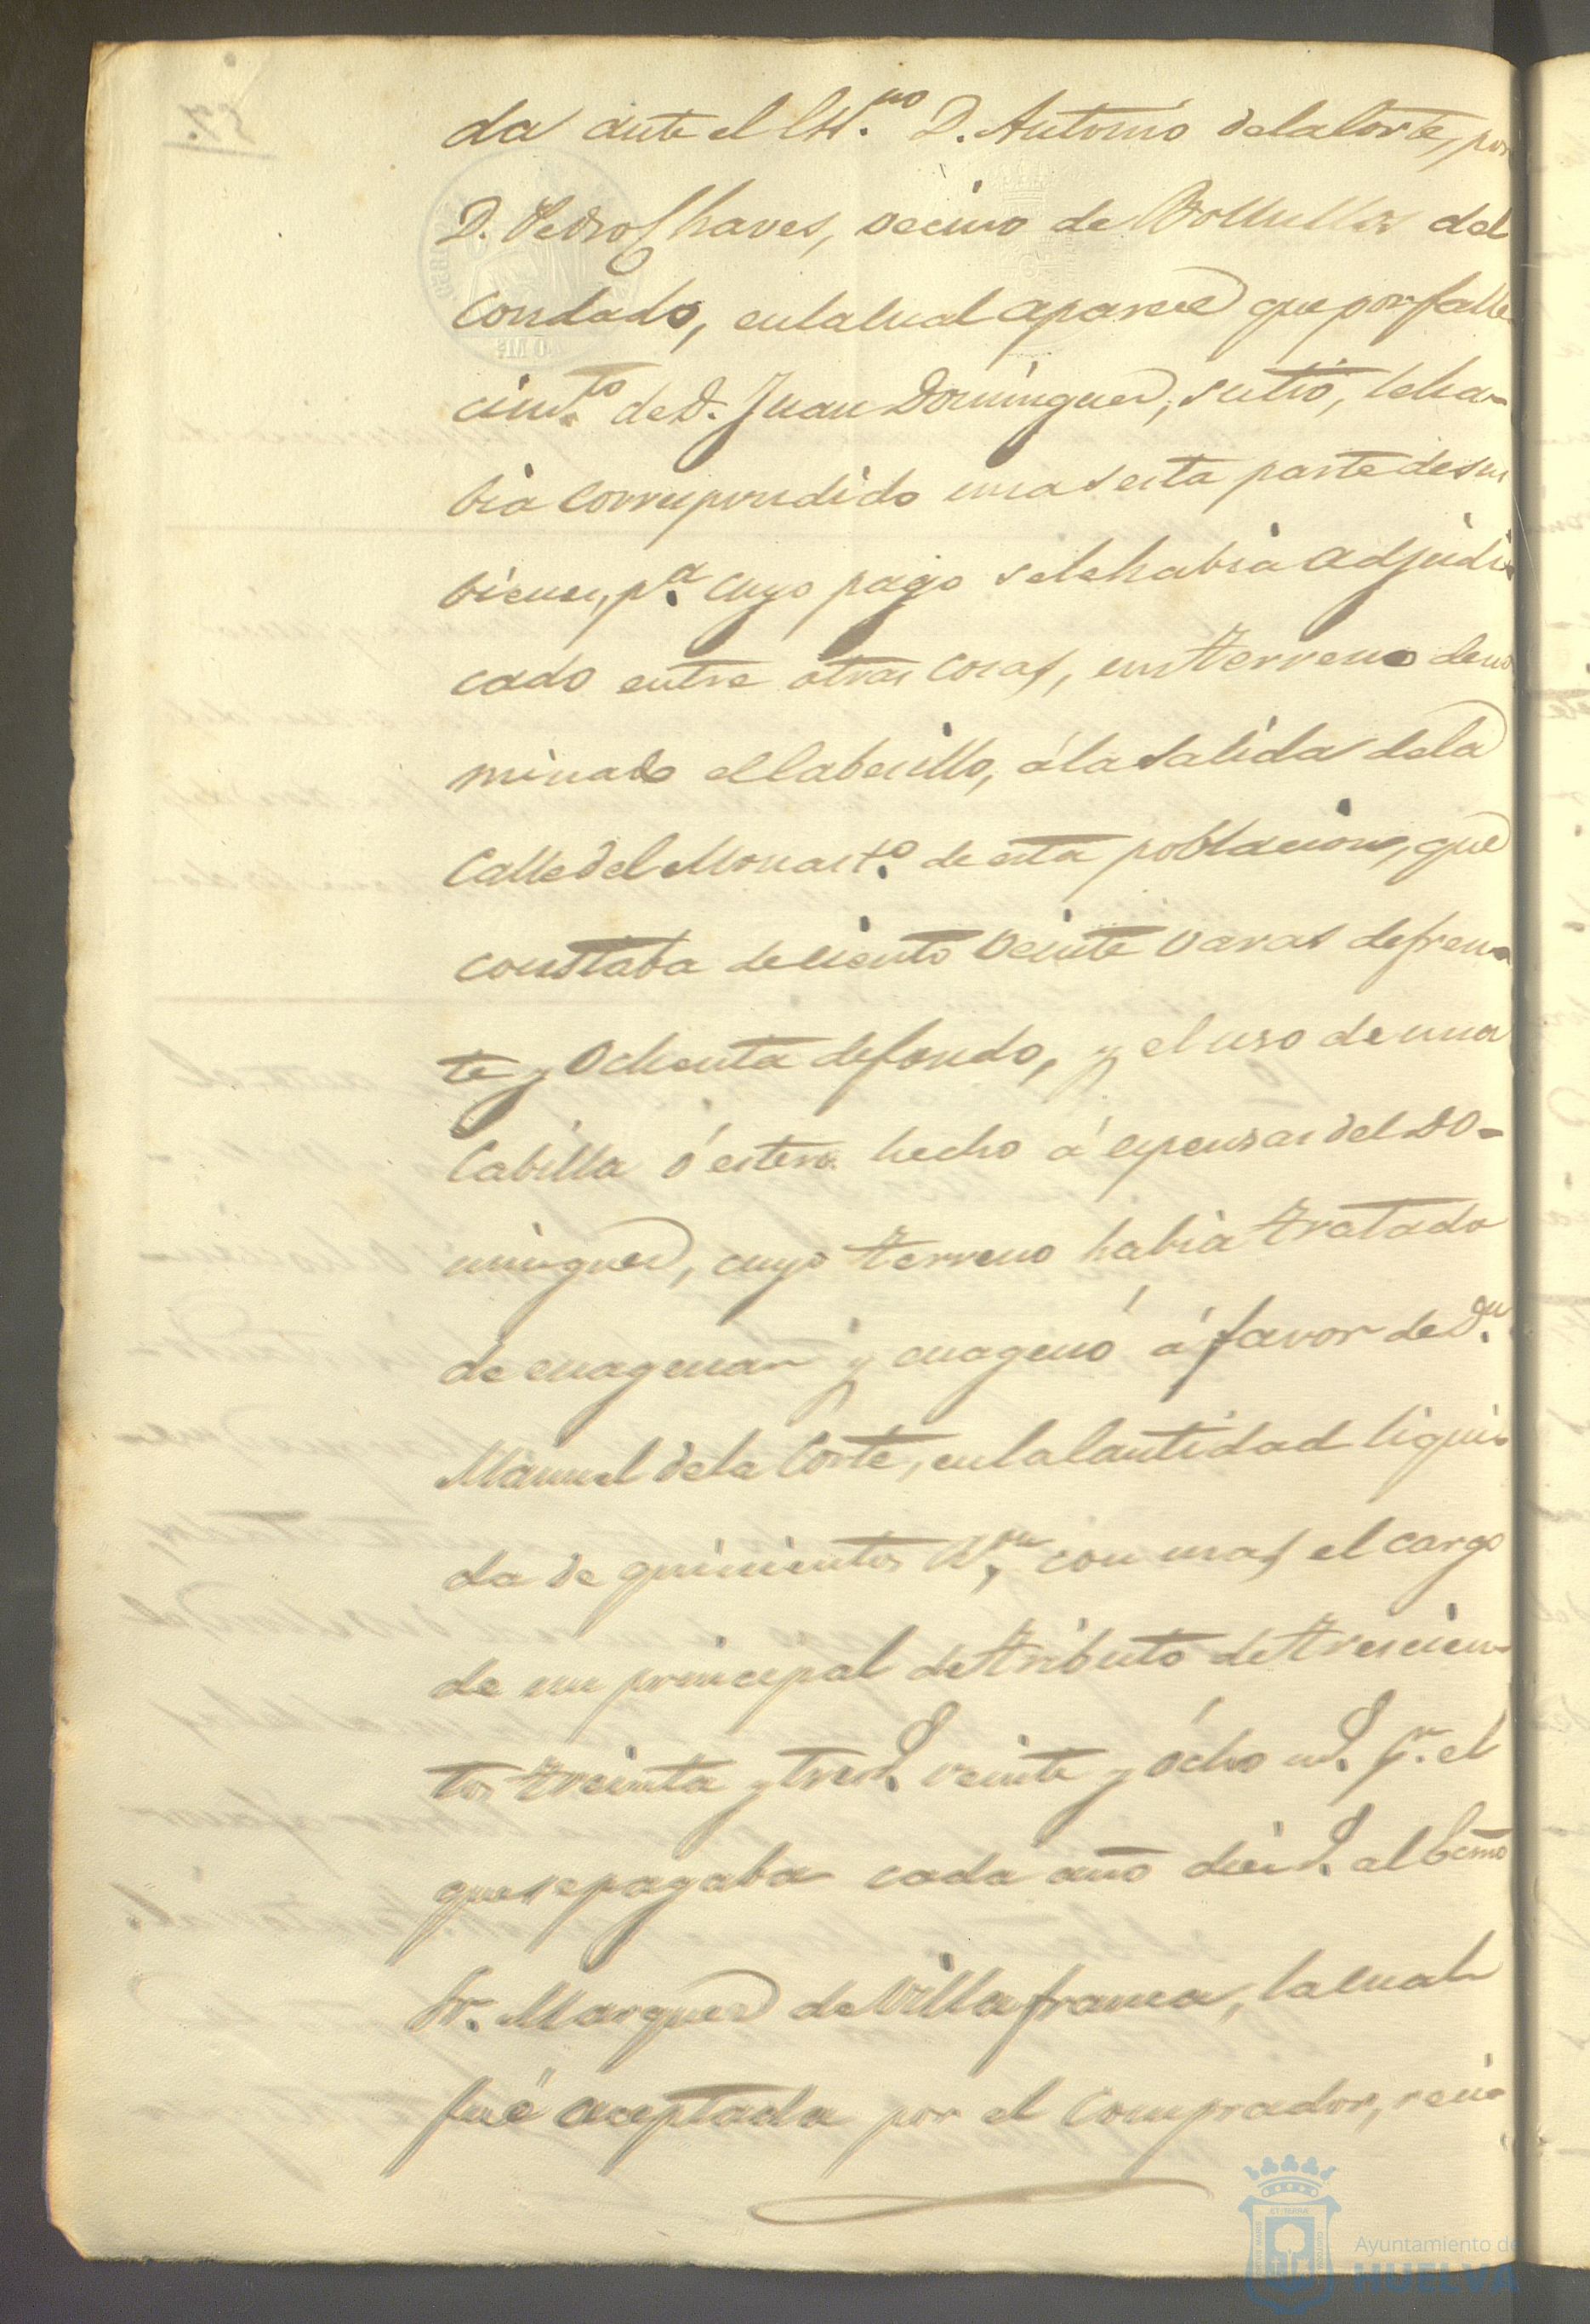 da ante el Es.no D. Antonio de la Corte, por
D. Pedro Chaves, vecino de Bollullos del
Condado, en la cual aparece que por falle
cim.to de D. Juan Dominguez, su tio, le ha-
bia correspondido una sesta parte de sus
bienes, p.a cuyo pago se le habia adjudi-
cado entre otras cosas, un terreno deno
minado el Cabesillo, á la salida de la
Calle del Monast.o de esta poblacion, que
constaba de ciento veinte varas de fren-
te y ochenta de fondo, y el uso de una
Cabilla ó estero hecho á espensas del Do-
minguez, cuyo terreno habia tratado
de enagenar y enagenó á favor de D.n
Manuel de la Corte, en la Cantidad liqui-
da de quinientos R.s v.n con mas el cargo
de un principal de tributo de trescien-
tos treinta y tres r.s veinte y ócho m.s p.r el
que se pagaba cada año diez r.s al Ecmo
Sr. Marquez de Villafranca, la cual
fué aceptada por el Comprador, ve
57.
Ayuntamiento de
HUELVA